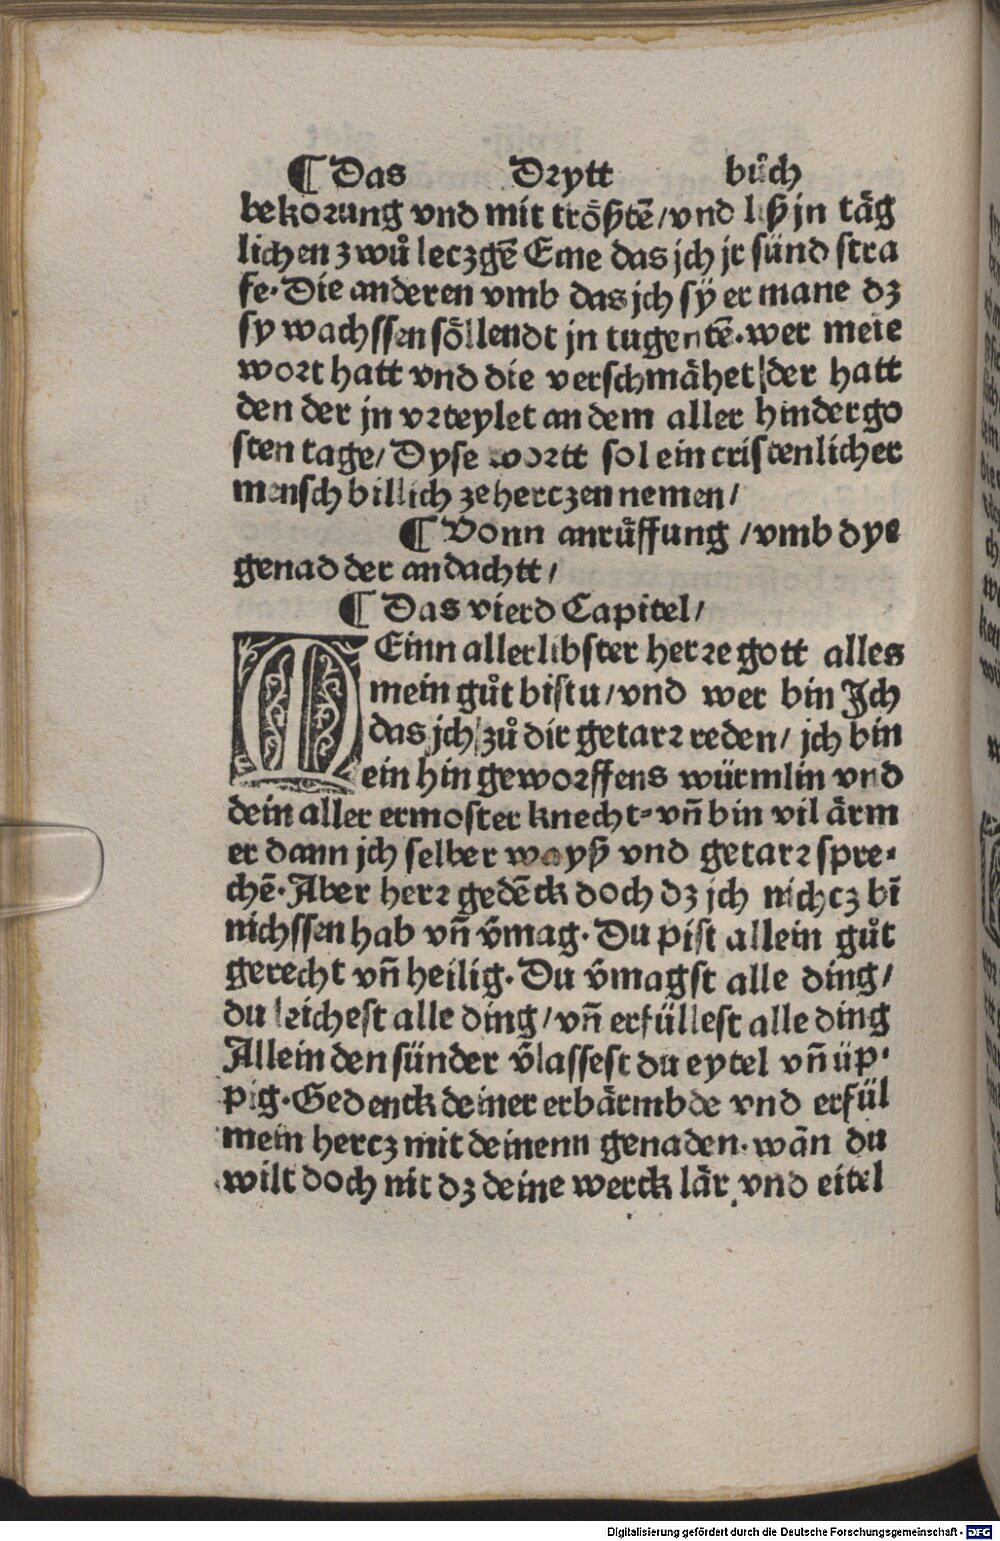 ¶ Das Drytt bůch
bekorung vnd mit trößtē/vnd liß jn täg
lichen zwů leczgē Eine das jch jr sünd stra
fe. Die anderen vmb das jch sÿ er mane dz
sy wachssen söllendt jn tugentē. wer meie
wort hatt vnd die verschmähet/der hatt
den der jn vrteylet an dem aller hindergo
sten tage/ Dyse wortt sol ein cristenlicher
mensch billich ze herczen nemen/
¶ Vonn anrüffung /vmb dye
genad der andachtt/
¶ Das vierd Capitel/
MEinn allerlibster herre gott alles
mein gůt bistu/vnd wer bin Jch
das jch zů dir getarr reden/ jch bin
ein hin geworffens würmlin vnd
dein aller ermoster knecht⸗ vñ bin vil ärm
er dann jch selber wayß vnd getarr spre⸗
chē. Aber herr gedēck doch dz jch nichcz bī
nichssen hab vñ v̄mag. Du pist allein gůt
gerecht vñ heilig. Du v̄magst alle ding/
du leichest alle ding/vñ erfüllest alle ding
Allein den sünder v̄lassest du eytel vñ üp⸗
pig. Gedenck deiner erbärmbde vnd erfül
mein hercz mit deinenn genaden. wān du
wilt doch nit dz deine werck lär vnd eitel
Digitalisierung gefördert durch die Deutsche Forschungsgemeinschaft - DFG